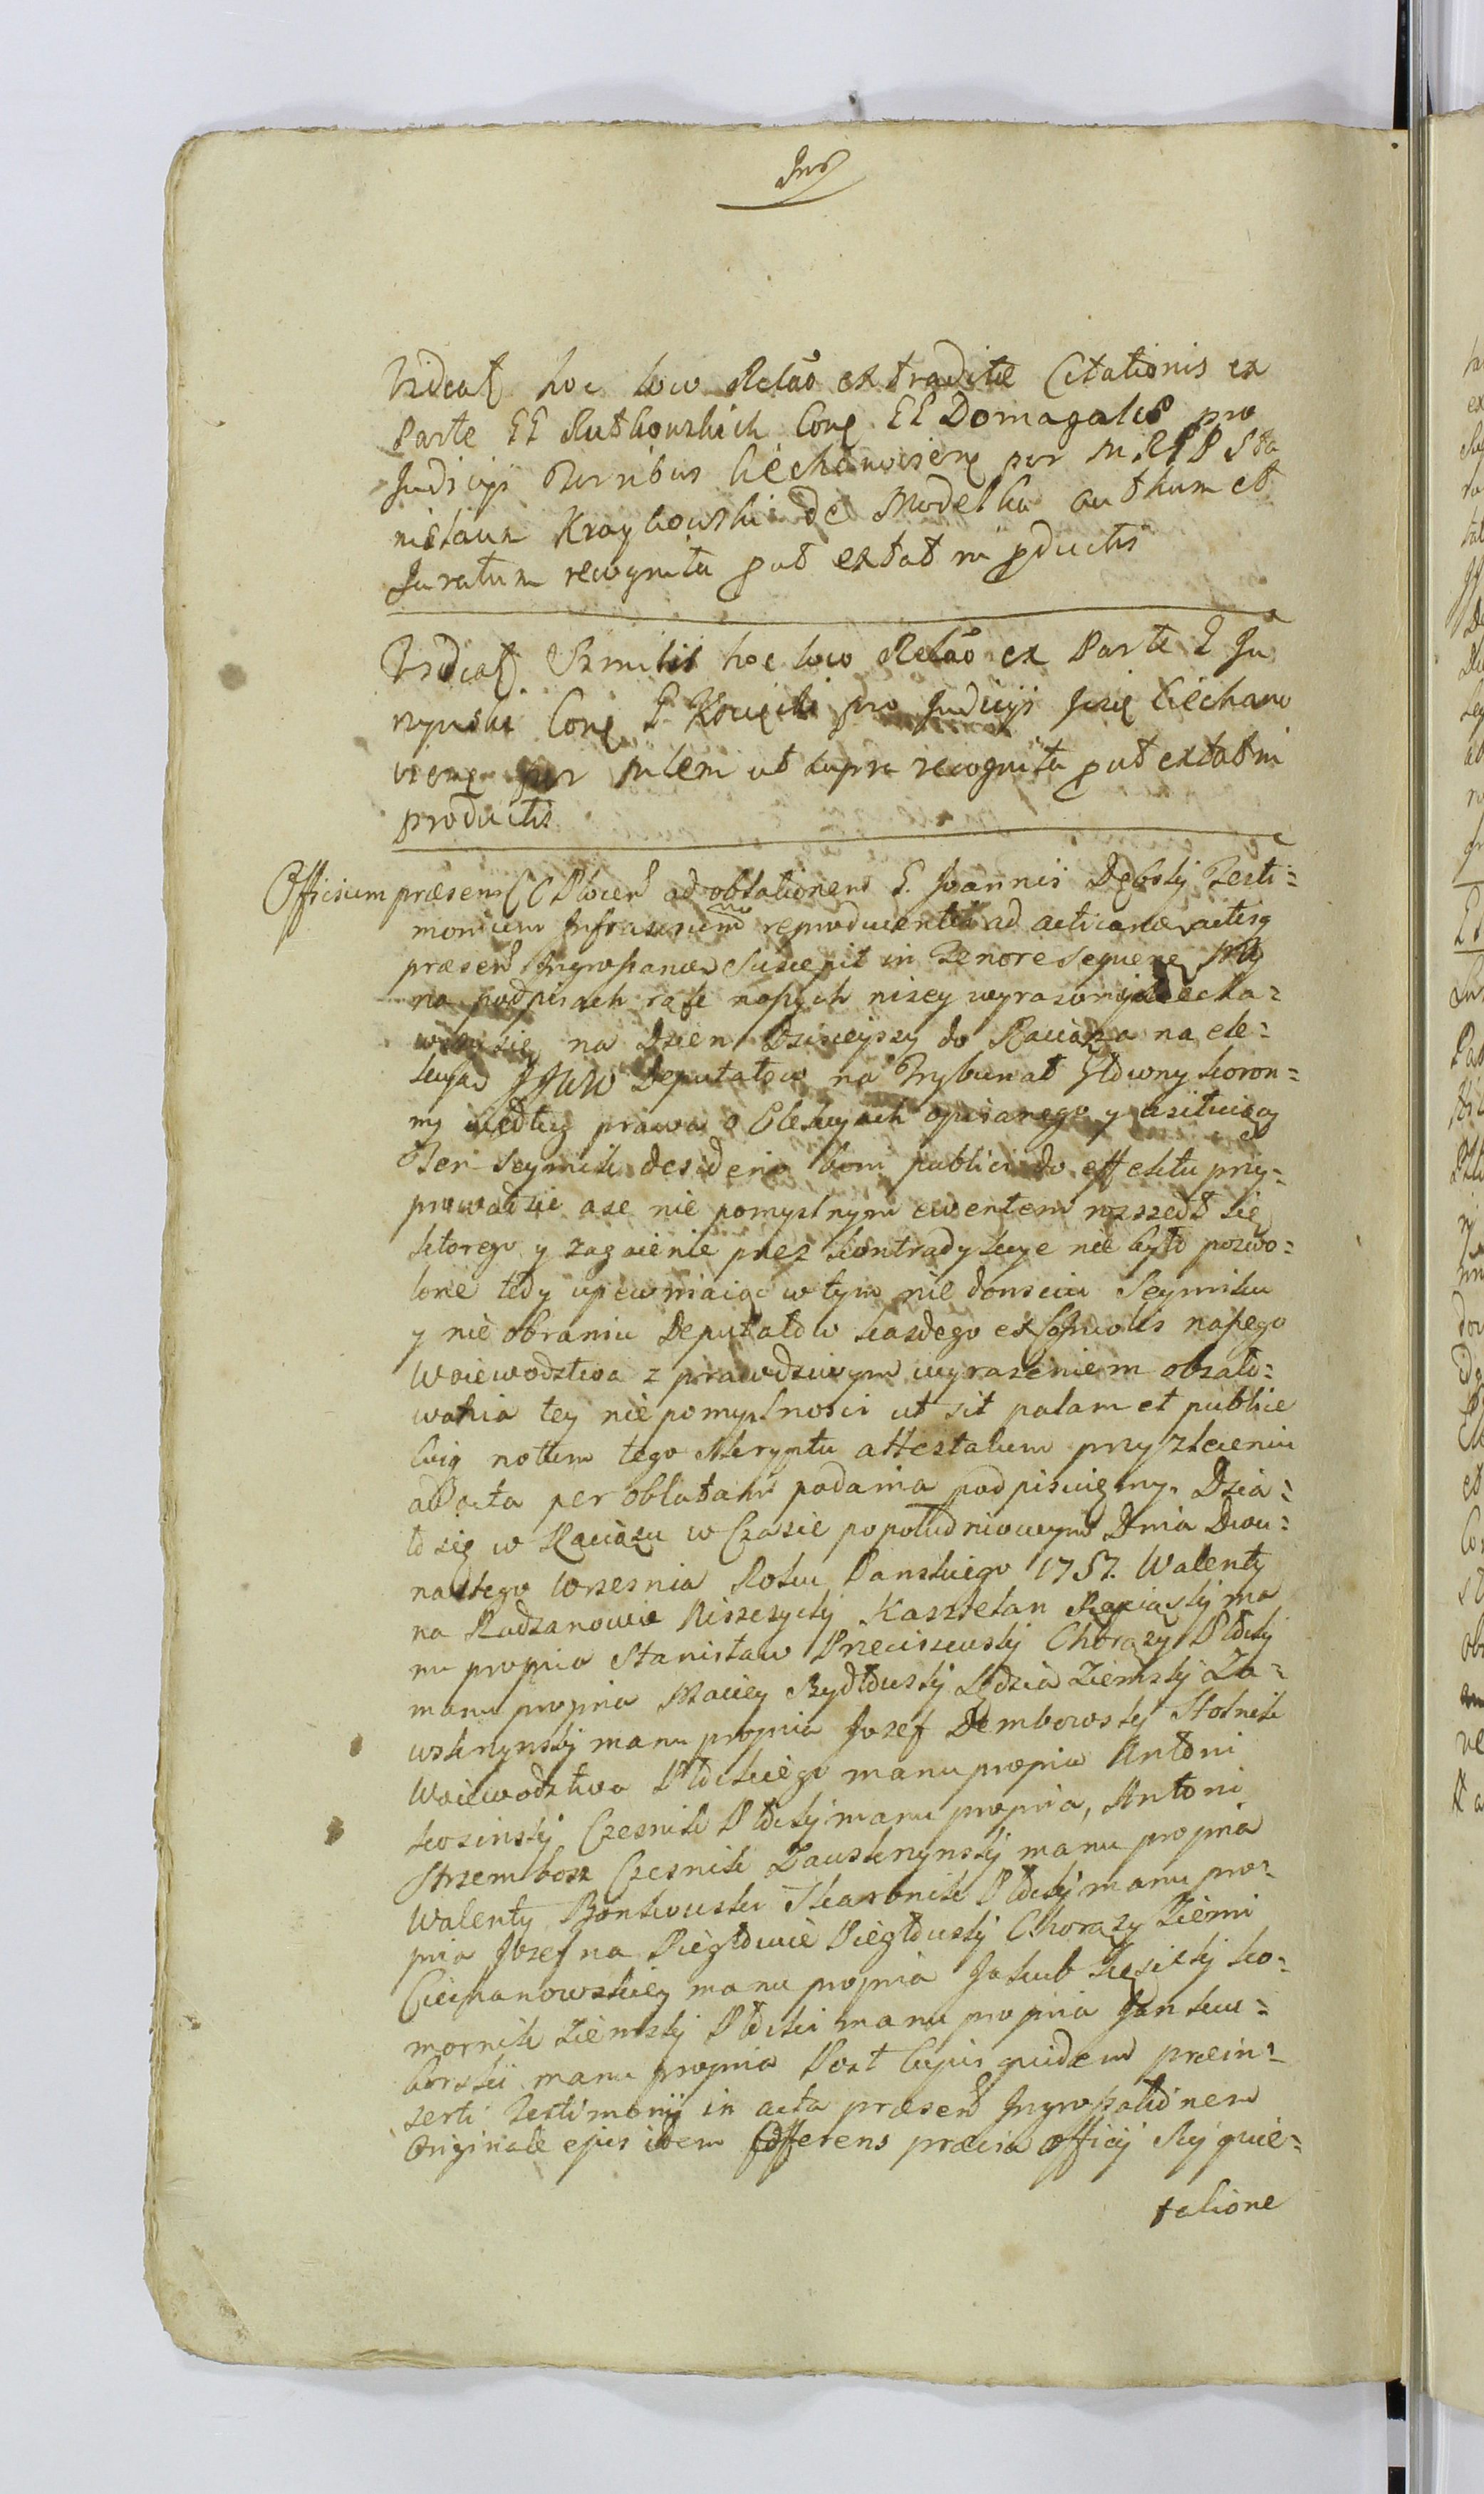 Videat hoc loco Relao extraditæ Citationis ex
Parte EE Rutkowskich Conq EE Domagalis pro
Judicijs Terribus Ciechanoviens per M
nislaum Kraykowski de Modelka authum et
Juratum recognita put extat in pductis
Videat Similis hoc loco Relao ex Parte E
Conq E pro Judicijs Ciechano
viens per Mlem ut supra recognita put extat in
productis
Officium præsens C Plocen ad oblationem E. Joannis Dębskj Testi=
monium Infrascriptum reproducentis ad acticand actisq
præsen Ingrossand Suscepit in Tenore Sequen My
na podpisach rąk naszych niżey wyrażonych
się na Dzien Dzisieyszy do Raciąża na ele=
kcyą JJWW Deputatow na Trybunał Głowny koron=
ny według prawa o Elekcyach opisanego y
Seymik desiderio boni publici do effektu przy=
prowadzić aże nie pomyslnym ewentem rozszedł się
ktorego y zagaienie przez kontradykcye nie było pozwo=
lone tedy upewniaiąc w tym nie doysciu Seymiku
y nie obraniu Deputatow każdego ex Incolis naszego
Woiewodztwa z prawdziwym wyrażeniem obżało=
wania tey nie pomyslności ut sit palam et publice
cuiq notum tego skryptu attestatum przy zleceniu
ad acta per oblatam podania podpisuięmy. Dzia=
ło się w Raciążu w Czasie popołudniowym Dnia Dwu=
nastego Wrzesnia Roku Panskiego 1757. Walenty
na Radzanowie Niszczyckj Kasztelan Raciąskj ma
nu propria Stanisław Przeciszewskj Chorąży Płockj
manu propria Maciey Sędzia Ziemskj Za=
wskrzynskj manu propria Jozef Dembowskj Stolnik
Woiewodztwa Płockiego manu propria Antoni
kosinskj Czesnik Płockj manu propria, Antoni
Strzembosz Czesnik Zawskrzynskj manu propria
Walenty Bonkowski Skarbnik Płockj manu pro=
pria Jozef na Piegłowie Piegłowskj Chorąży Ziemi
Ciechanowskiey manu propria Jakub ko=
mornik Ziemskj Płocki manu propria Jan
manu propria Post cujus quidem præin=
serti Testimonij in acta præsen Ingrossationem
Originale ejus idem Offerens præcia Officij Sui quie=
tatione